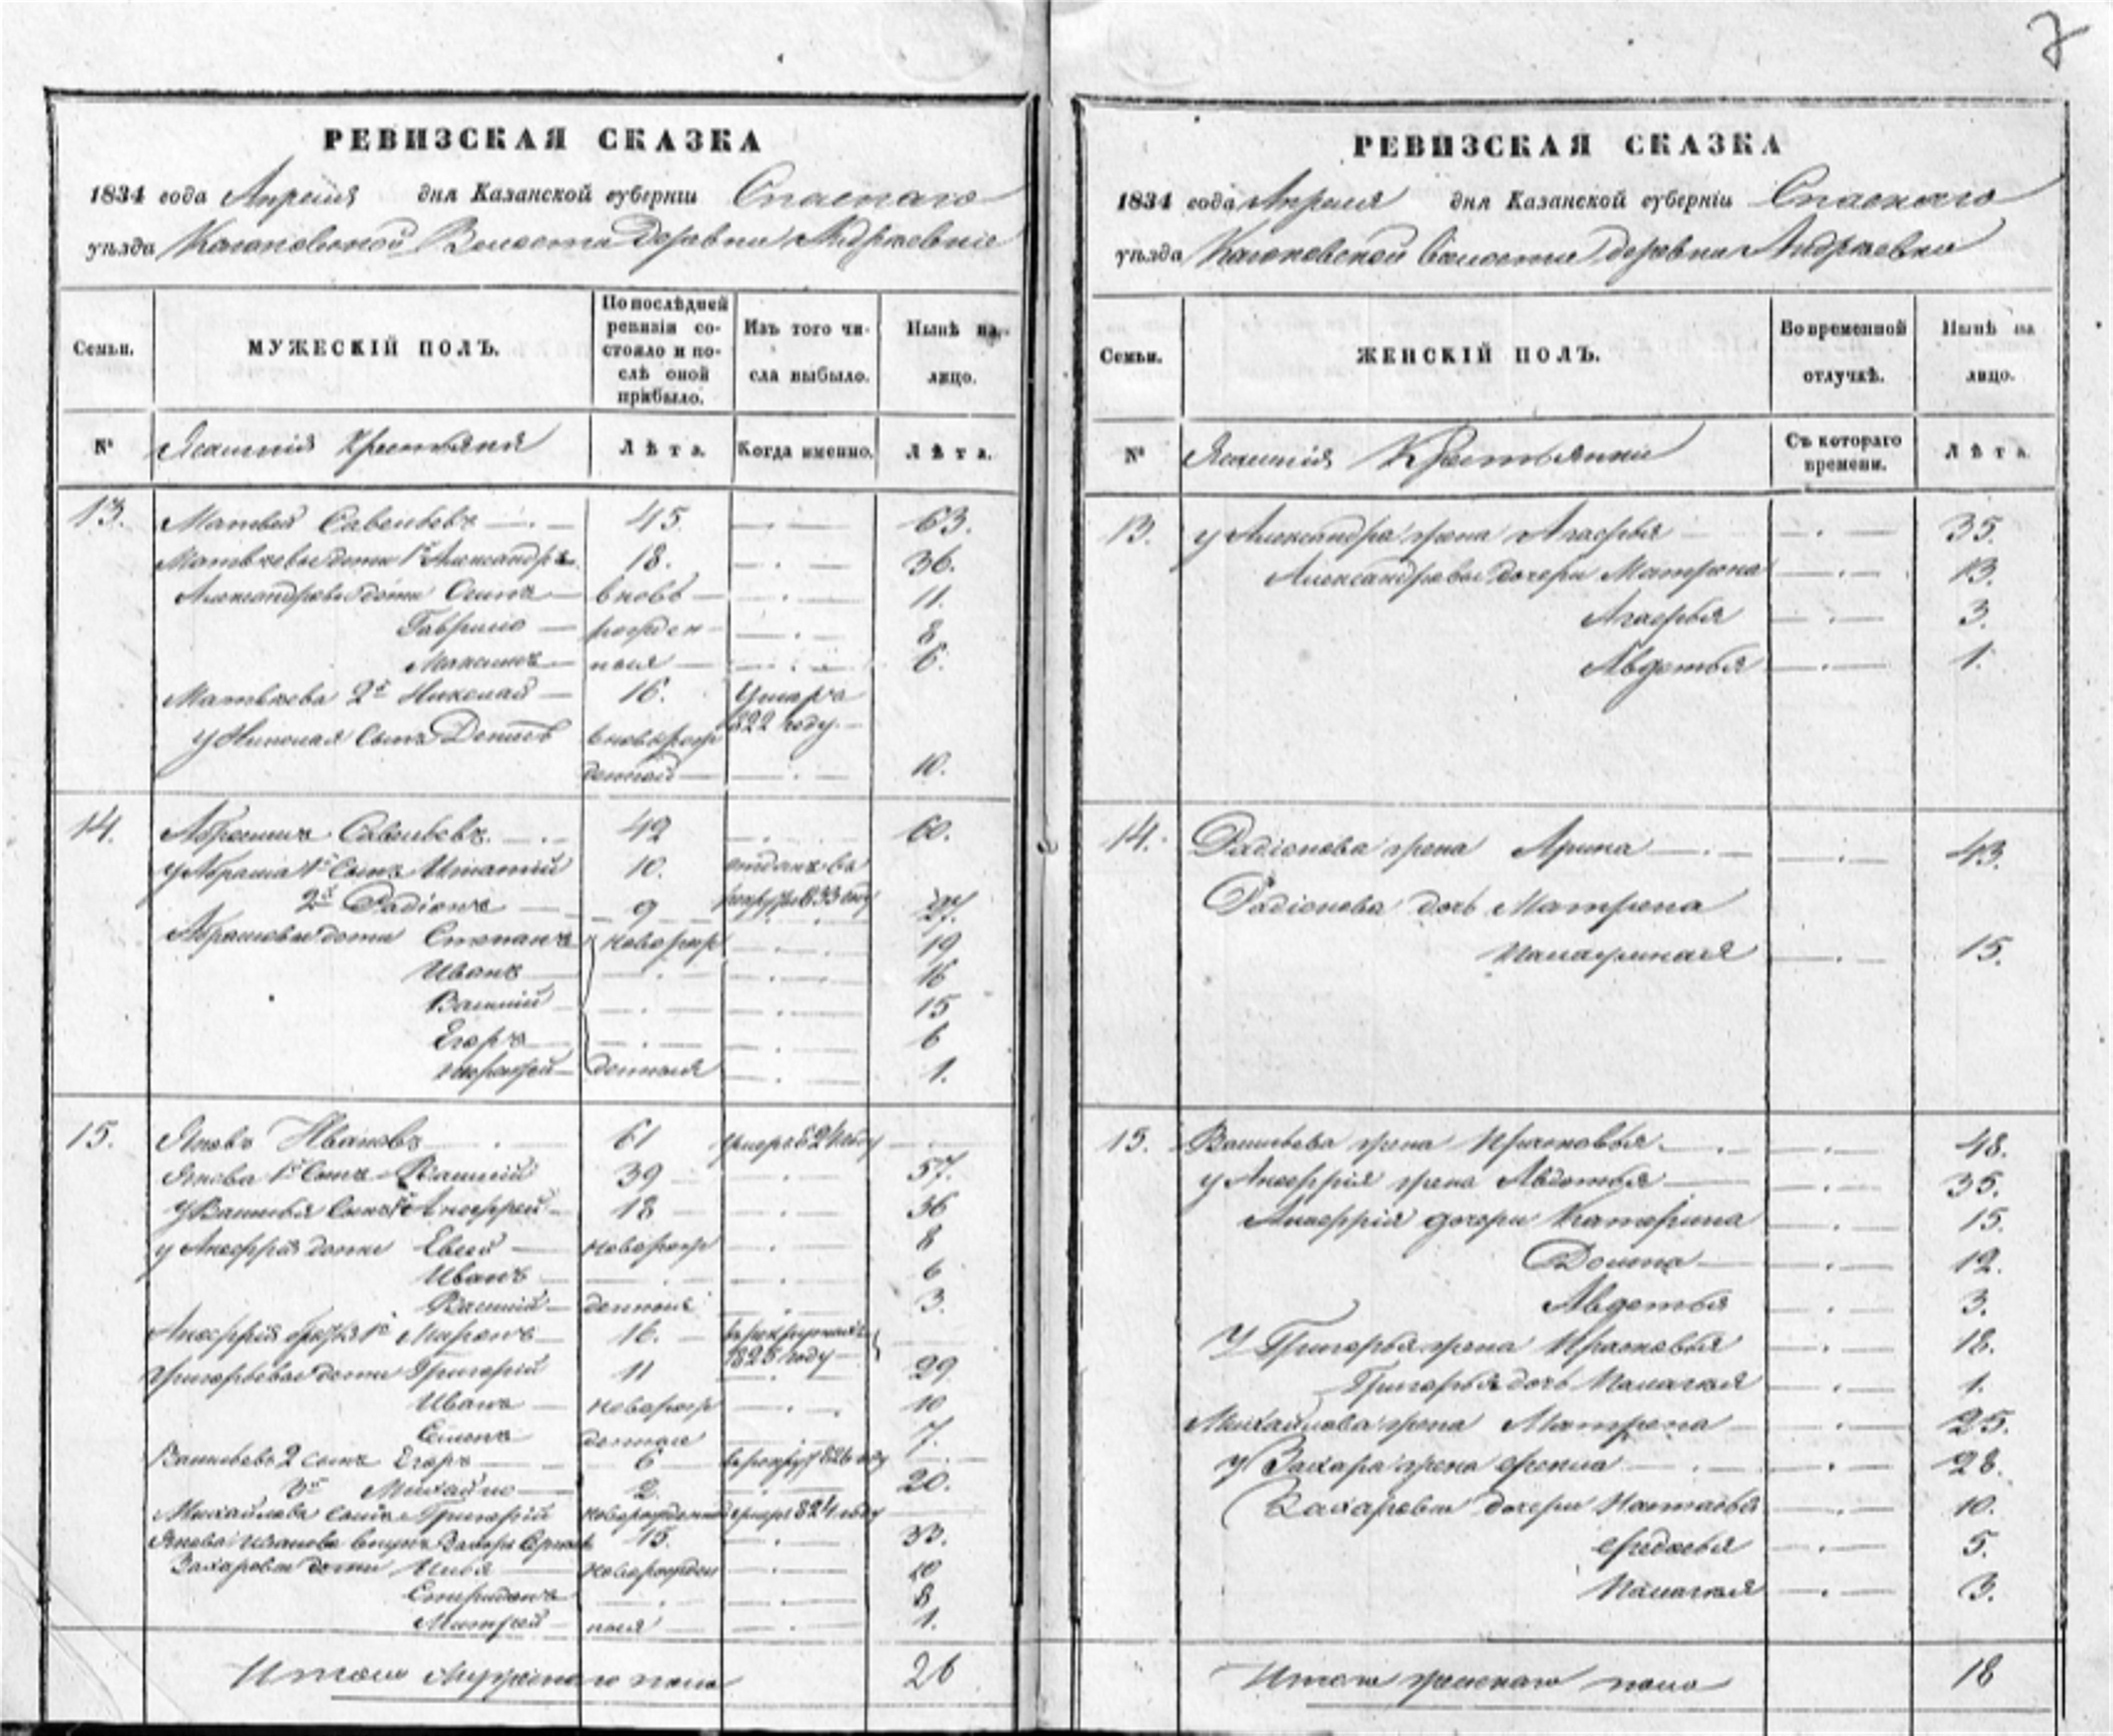 7
РЕВИЗСКАЯ СКАЗКА
1834 года Апреля дня Казанской губерніи Спаскаго
уѣзда Волости Деревни
Семьи.
МУЖЕСКІЙ ПОЛЪ.
По послѣдней ревизіи состояло и послѣ оной прибыло.
Изъ того числа выбыло.
Нынѣ на лицо.
№
Ясашнія Крестьяня
Лѣта.
Когда именно.
Лѣта.
13. Матвей Савельевъ 45. 63.
Матвеевы дети 1й Александръ 18. 36.
Александровы дети Осипъ вновь 11.
Гаврило рожден 8
Максимъ ныя 6.
Матвеевъ 2й Николай 16. Умеръ
822 году.
У Николая Сынъ Денисъ вноворож
денной 10.
14. Абрамъ Савельевъ. 42 60.
у Абрама 1й Сынъ Игнатий 10. отданъ въ
рекруты 833 году
2й Радіонъ 9 27.
Абрамовы дети Степанъ новорож 19
Иванъ 16
Василий 15
Егоръ 6
денныя 1.
15. Яковъ Ивановъ 61 умеръ 82 году
Якова 1й Сынъ Василий 39 57.
У Василья Сынъ 1й Анофрей 18 36
у Анофрія дети Евсей новорож 8
Иванъ 6
Василий денныя 3.
Анофрія братья 1й Миронъ 16. в рекрутахъ
1825 году
Григорьевы дети Григорій 11 29
Иванъ новорож 10
Семенъ денные 7.
Васильевъ 2 сынъ Егоръ 6 в рекруты 826 году
3й Михайло 2. 20.
Михайлова сынъ Григорій новорожденной умеръ 824 году
Якова Иванова внукъ Захаръ 15. 33.
Захаровы дети Илья новорожден 10
Спиридонъ 8
Митрей ныя 1.
Итого Мужеска го пола 26
РЕВИЗСКАЯ СКАЗКА
1834 года Апреля дня Казанской губерніи Спаскаго
уѣзда Волости деревни
Семьи.
ЖЕНСКІЙ ПОЛЪ.
Во временной отлучкѣ.
Нынѣ на лицо.
№
Ясашнія Крестьянки
Съ котораго времени.
Лѣта.
13. у Александра жена Агафья 35.
Александровы дочери Матрена 13.
Агафья 3.
Авдотья 1.
14. Радіонова жена Арина 43.
Радіонова дочь Матрена
15.
15. Васильева жена Прасковья 48.
у Анофрія жена Авдотья 35.
Анофрія дочери Катерина 15.
Домна 12.
Авдотья 3.
У Григорья жена Прасковья 18.
Григорья дочь Палагея 1.
Михайлова жена Матрена 25.
у Захара жена 28.
Захаровы дочери Настасья 10.
Федосья 5.
Палагея 3.
Итого женскаго пола 18